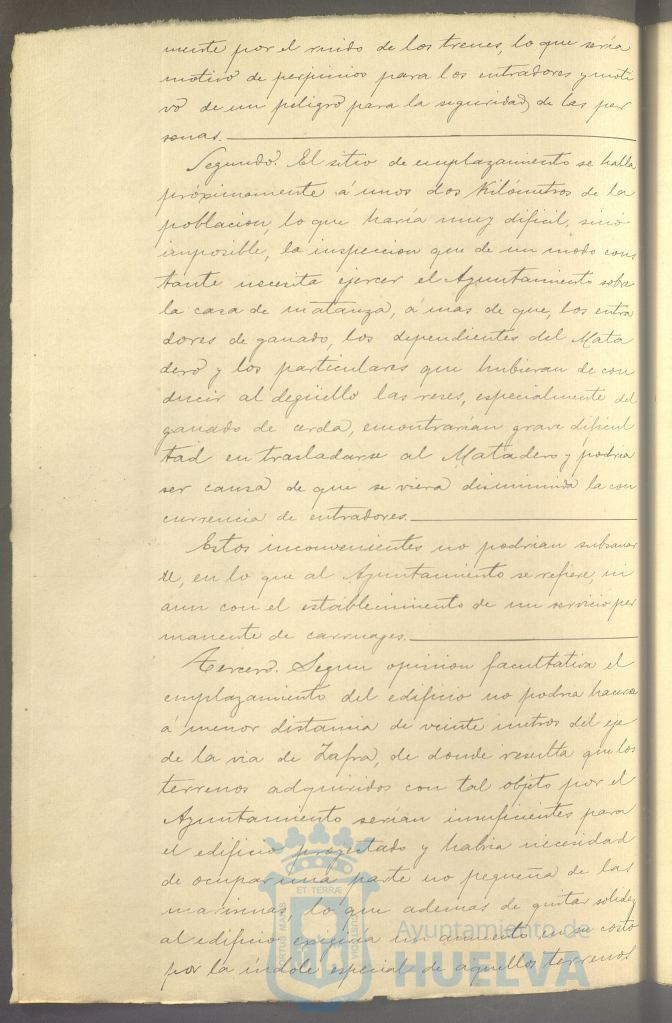 mente por el ruido de los trenes, lo que seria
motivo de perjuicios para los entradores y moti
vo de un peligro para la seguridad de las per
sonas.
Segundo. El sitio de emplazamiento se halla
próximamente á unos dos Kilómetros de la
poblacion, lo que haria muy dificil, sinó
imposible, la inspeccion que de un modo cons
tante necesita ejercer el Ayuntamiento sobre
la casa de matanza, á mas de que, los entra
dores de ganado, los dependientes del Mata
dero y los particulares que hubieran de con
ducir al degüello las reses, especialmente del
ganado de cerda, encontrarian grave dificul
tad en trasladarse al Matadero y podria
ser causa de que se viera disminuida la con
currencia de entradores.
Estos inconvenientes no podrian subsanar
se, en lo que al Ayuntamiento se refiere, ni
aun con el establecimiento de un servicio per
manente de carruages.
Tercero. Segun opinion facultativa el
emplazamiento del edificio no podria hacerse
á menor distancia de veinte metros del eje
de la via de Zafra, de donde resulta que los
terrenos adquiridos con tal objeto por el
Ayuntamiento serian insuficientes para
el edificio proyectado y habria necesidad
de ocupar una parte no pequeña de las
marismas, lo que ademas de quitar solidez
al edificio exigiria un aumento en su costo
por la índole especial de aquellos terrenos
ET TERRÆ
PORTUS MARIS
CUSTODIA
Ayuntamiento de
HUELVA